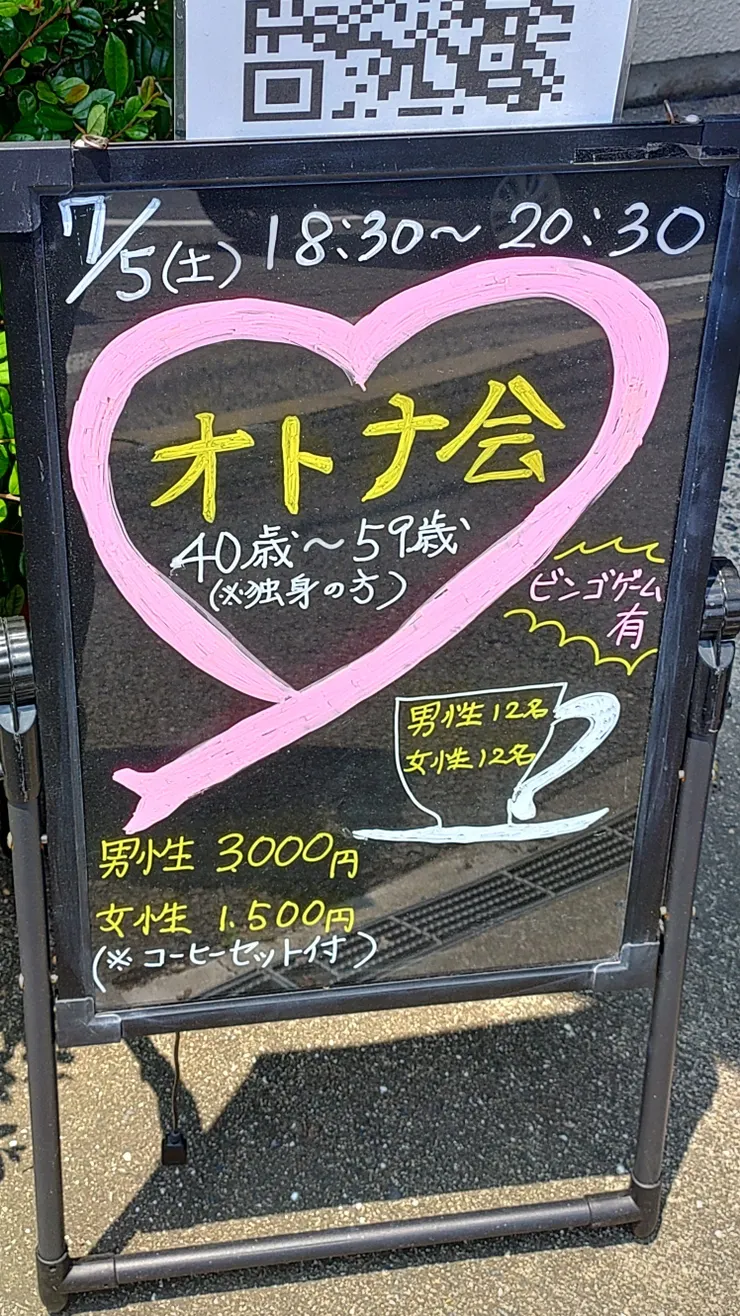 7/5(土) 18:30～20:30
オトナ会
40歳～59歳
(※独身の方)
ビンゴゲーム
有
男性12名
女性12名
男性 3.000円
女性 1.500円
(※コーヒーセット付)